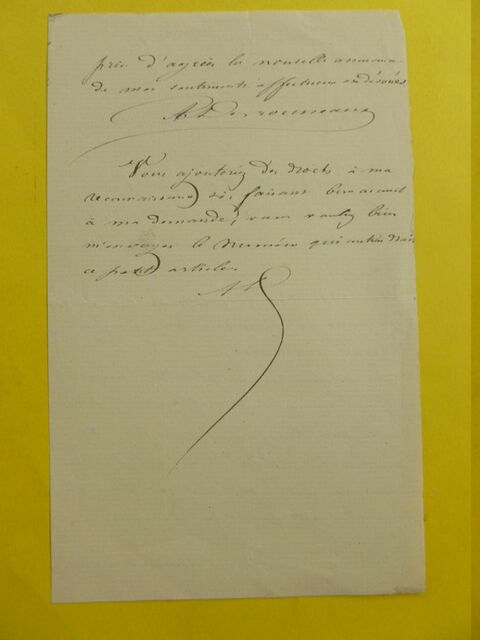 prie d'agréer la nouvelle assurance
de mes sentiments affectueux et dévoués
A Desrousseaux
Vous ajouterez des droits à ma
reconnaissance si, faisant bon accueil
à ma demande, vous voulez bien
m'envoyer le Numéro qui contiendrait
ce petit article.
A D